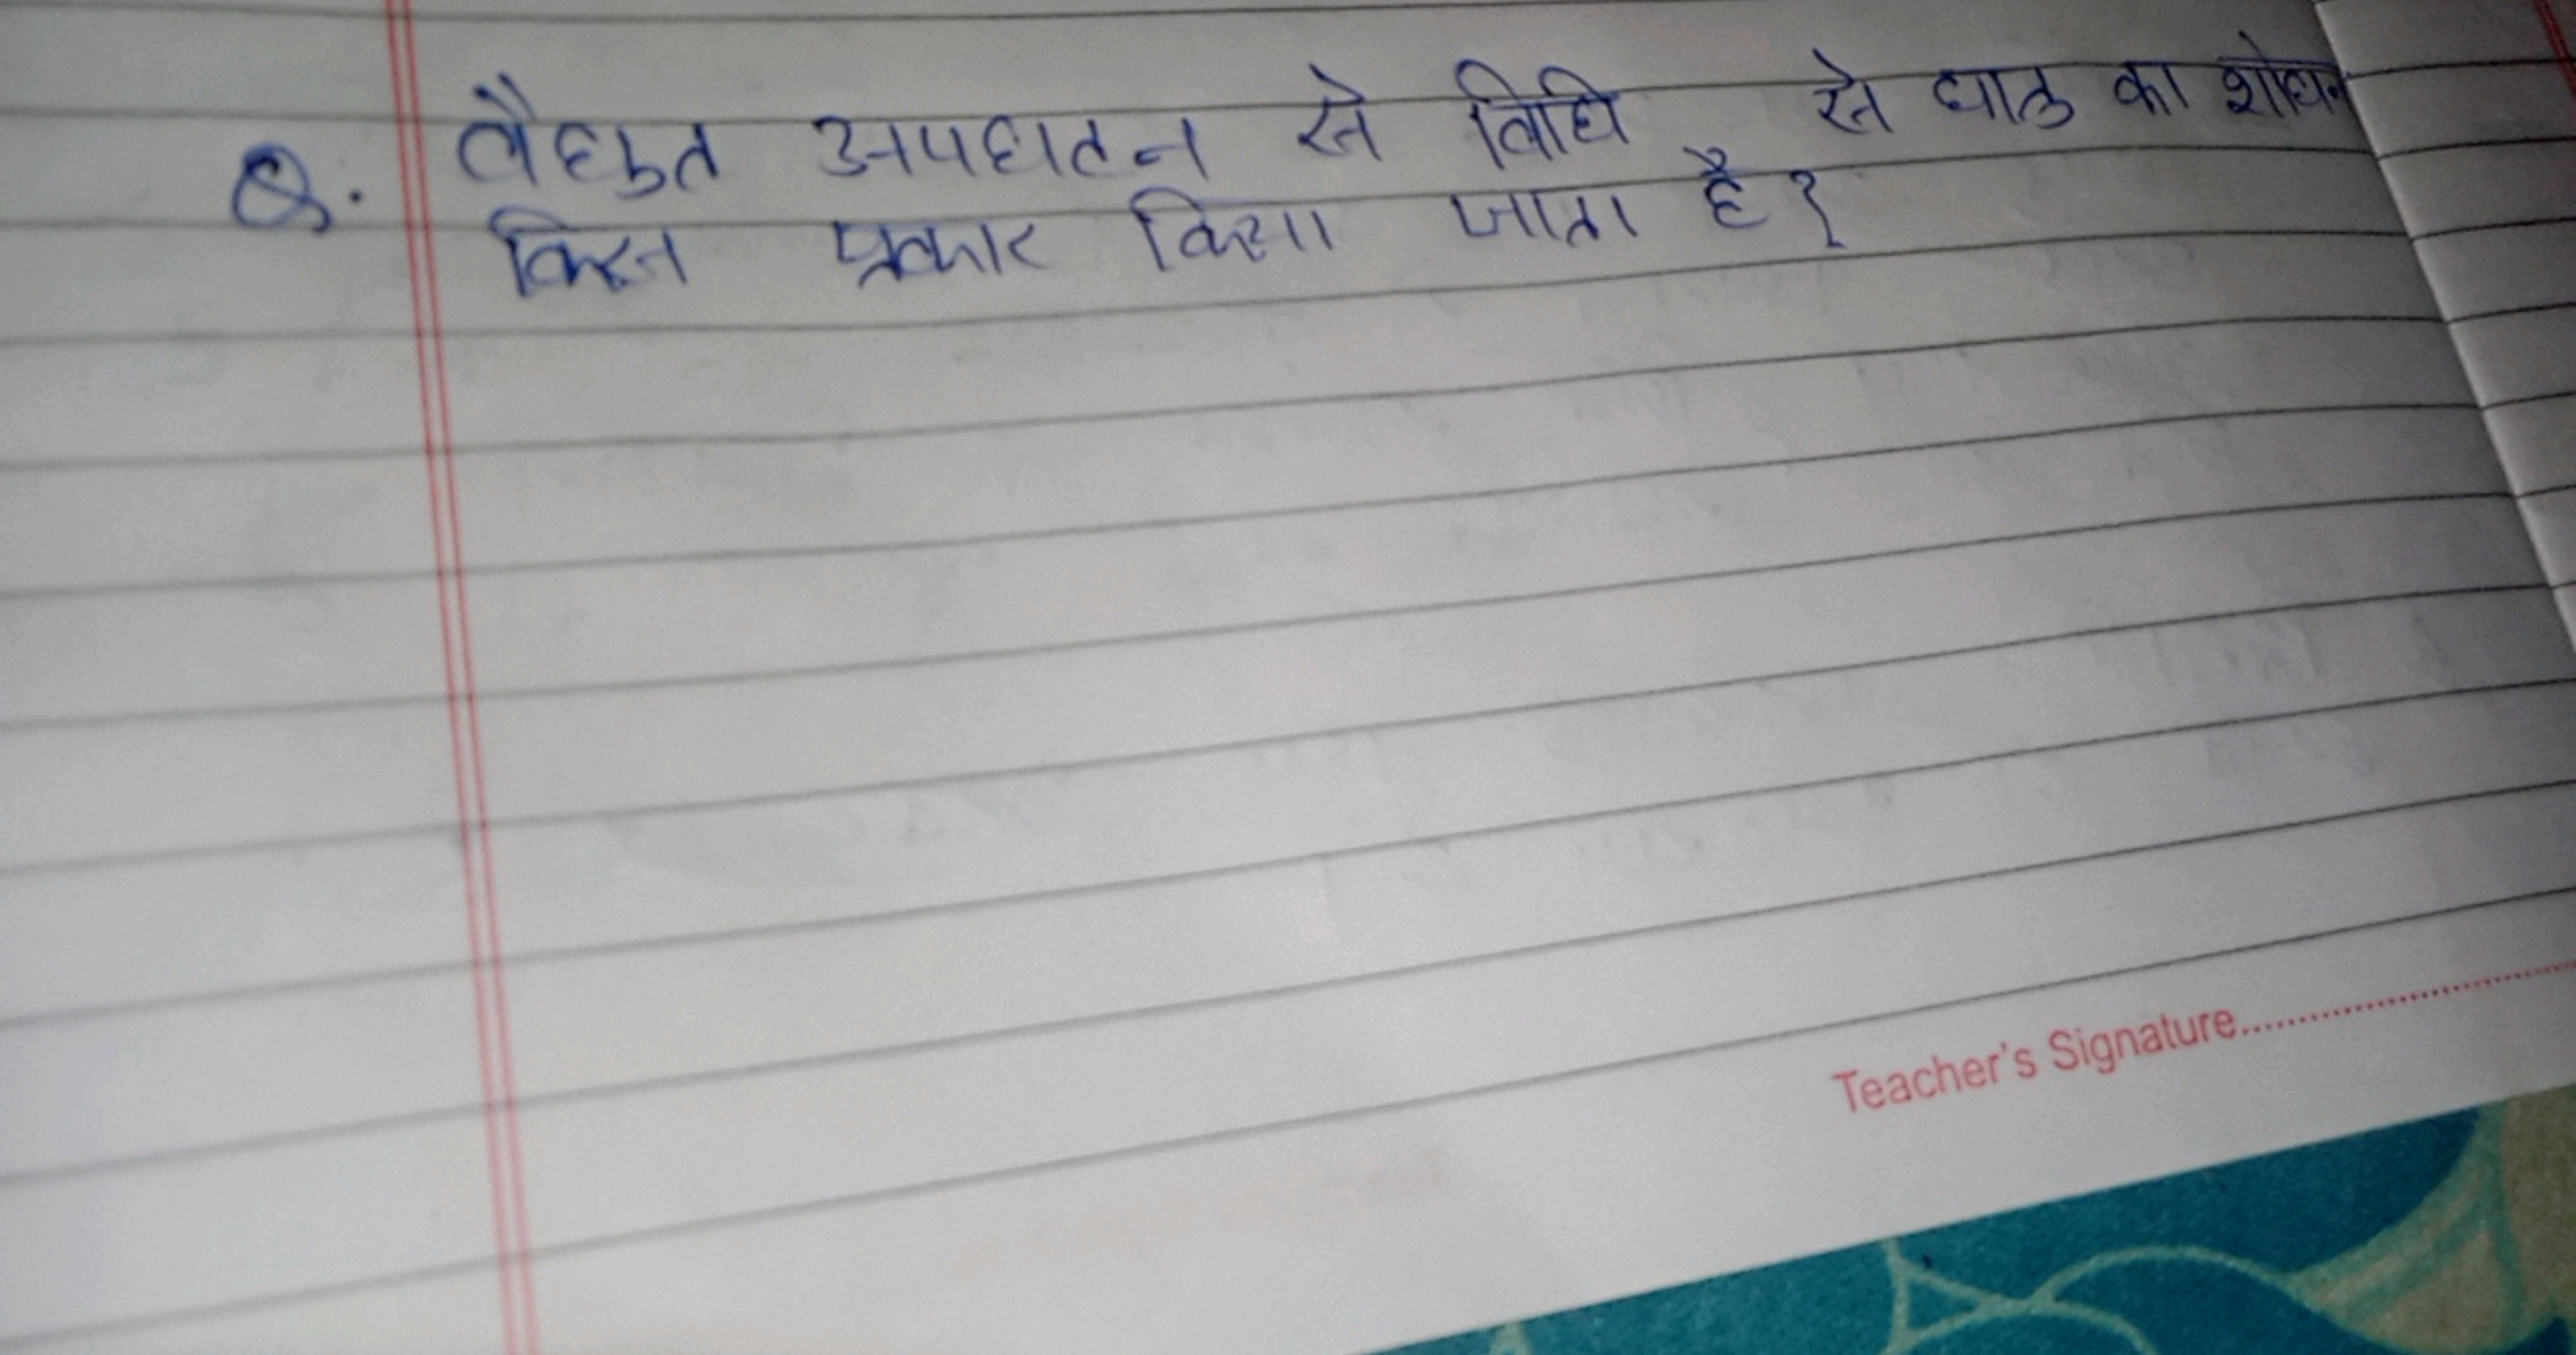 Q. वैद्युत अपघटन से विधि से धातु का शोधन
किस प्रकार किया जाता है?
Teacher's Signature....................